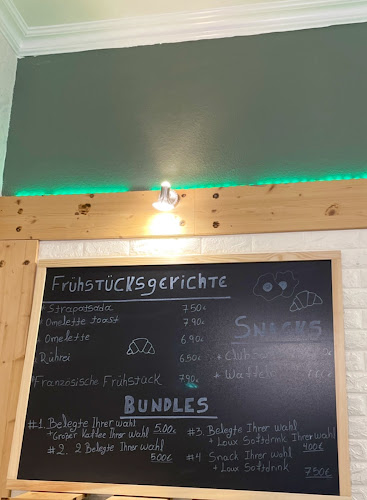 FRÜHSTÜCKSGERICHTE
+ Strapatsada 7.50€
+ Omelette toast 7.90€
+ Omelette 6.90€
Rührei 6.50€
*Französische Frühstück 7.90€
SNACKS
+ Club
+ Waffeln
BUNDLES
#1. Belegte Ihrer wahl
+Großer Kaffee Ihrer Wahl 5.00€
#2. 2 Belegte Ihrer Wahl
5.00€
#3. Belegte Ihrer wahl
+ Loux Softdrink Ihrer wahl
4.00€
#4 Snack Ihrer Wahl
+ Loux Softdrink 7.50€